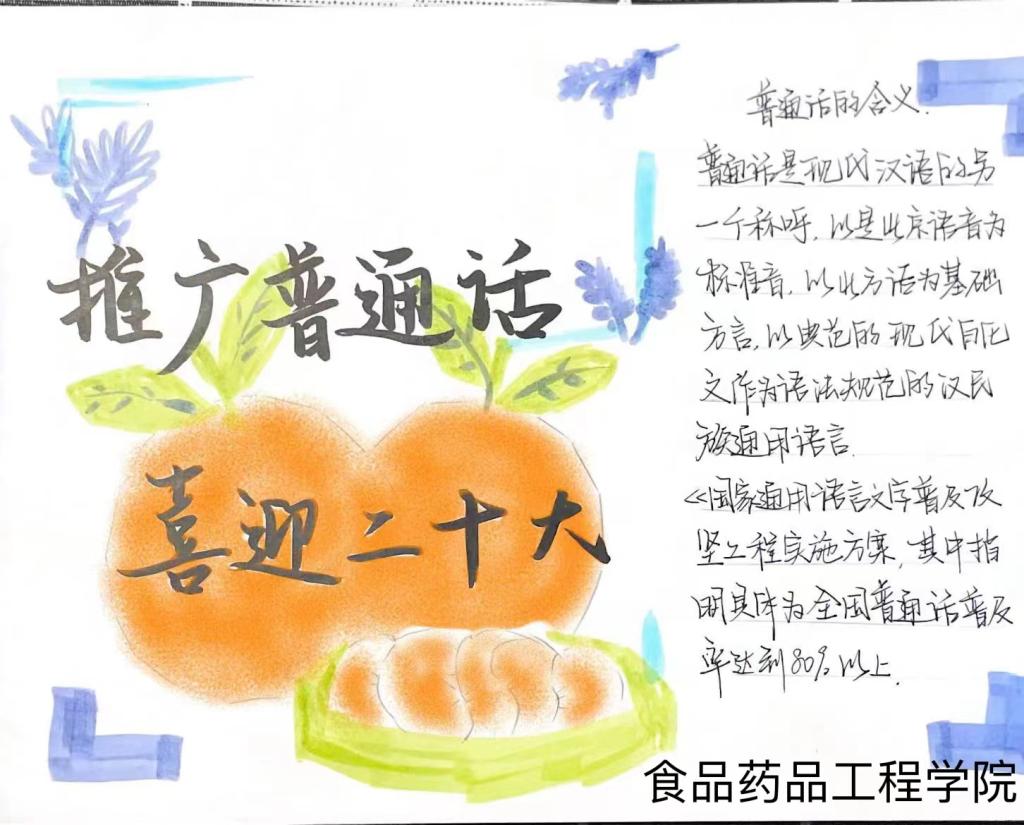 推广普通话
喜迎二十大
普通话的含义.
普通话是现代汉语的另
一个称呼,以是北京语音为
标准音,以北方话为基础
方言,以典范的现代白话
文作为语法规范的汉民
族通用语言.
《国家通用语言文字普及攻
坚工程实施方案,其中指
明具体为全国普通话普及
率达到80%以上.
食品药品工程学院